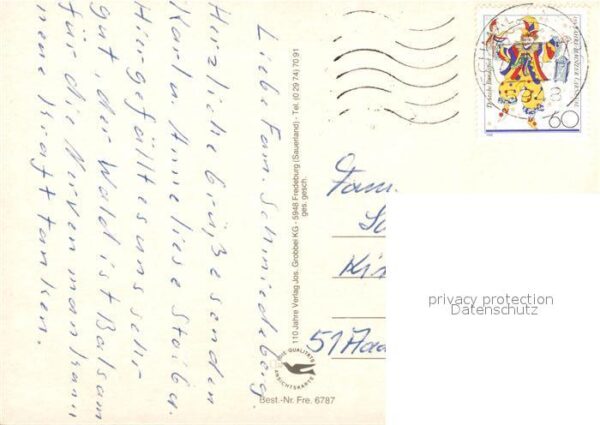 Liebe Fam. Schmiedeberg.
Herzliche Grüße senden
Karl u. Anneliese Stoiber.
Hier gefällt es uns sehr
gut der Wald ist Balsam
für die Nerven man kann
neue Kraft tanken.
110 Jahre Verlag Jos. Grobbel KG - 5948 Fredeburg (Sauerland) - Tel. (0 29 74) 70 91
ges. gesch.
DIE QUALITÄTS
ANSICHTSKARTE
Best.-Nr. Fre. 6787
60
Fam.
51 Aa
privacy protection
Datenschutz